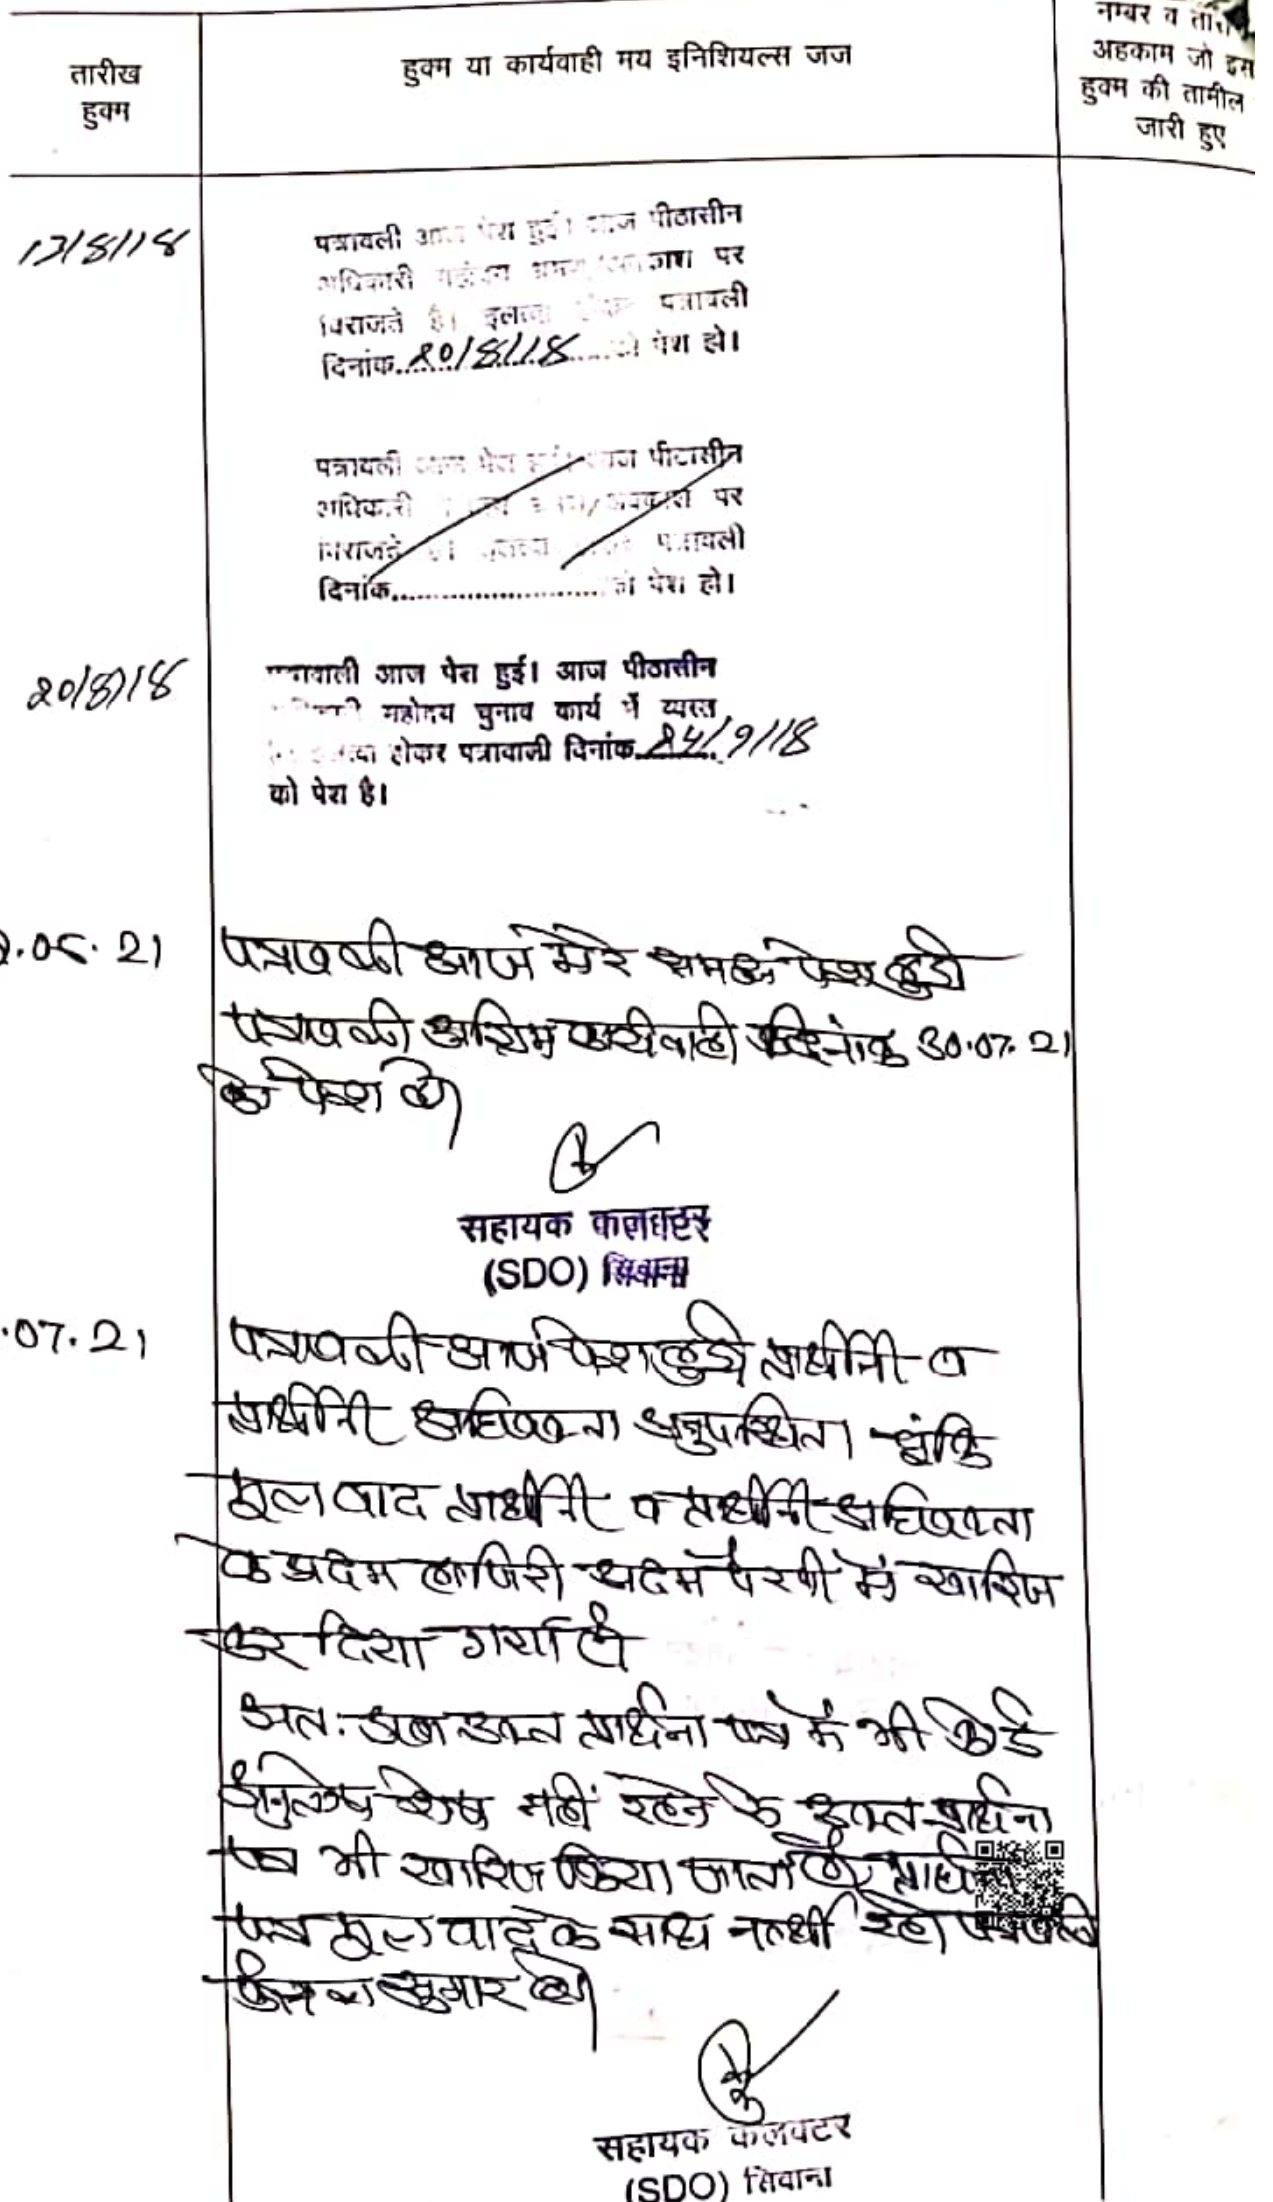 तारीख
हुक्म
हुक्म या कार्यवाही मय इनिशियल्स जज
नम्बर व
अहकाम जो इस
हुक्म की तामील
जारी हुए
13/8/18
पत्रावली आज पेश हुई। आज पीठासीन
अधिकारी महोदय भ्रमण/अवकाश पर
विराजते है। इलत्वा होकर पत्रावली
दिनांक 20/8/18 को पेश हो।
पत्रावली आज पेश हुई। आज पीठासीन
अधिकारी अवकाश पर
विराजते है। इलत्वा पत्रावली
दिनांक........................को पेश हो।
20/8/18
पत्रावाली आज पेश हुई। आज पीठासीन
अधिकारी महोदय चुनाव कार्य में व्यस्त
होकर पत्रावाली दिनांक 24/9/18
को पेश है।
.05.21
पत्रावली आज मेरे समक्ष पेश हुई।
पत्रावली अग्रिम कार्यवाही दिनांक 30.07.21
को पेश हो।
सहायक कलक्टर
(SDO) सिवाना
.07.21
पत्रावली आज पेश हुई। प्रार्थीनी व
प्रार्थीनी अधिवक्ता अनुपस्थित। चूंकि
मूल वाद प्रार्थीनी व प्रार्थीनी अधिवक्ता
के अदम हाजिरी अदम पैरवी में खारिज
कर दिया गया है।
अतः अब उक्त प्रार्थना पत्र में भी कोई
अनुतोष शेष नहीं रहने के उक्त प्रार्थना
पत्र भी खारिज किया जाता है। प्रार्थना
पत्र मूल वाद के साथ नत्थी रहे। पत्रावली
फैसल शुमार हो।
सहायक कलक्टर
(SDO) सिवाना